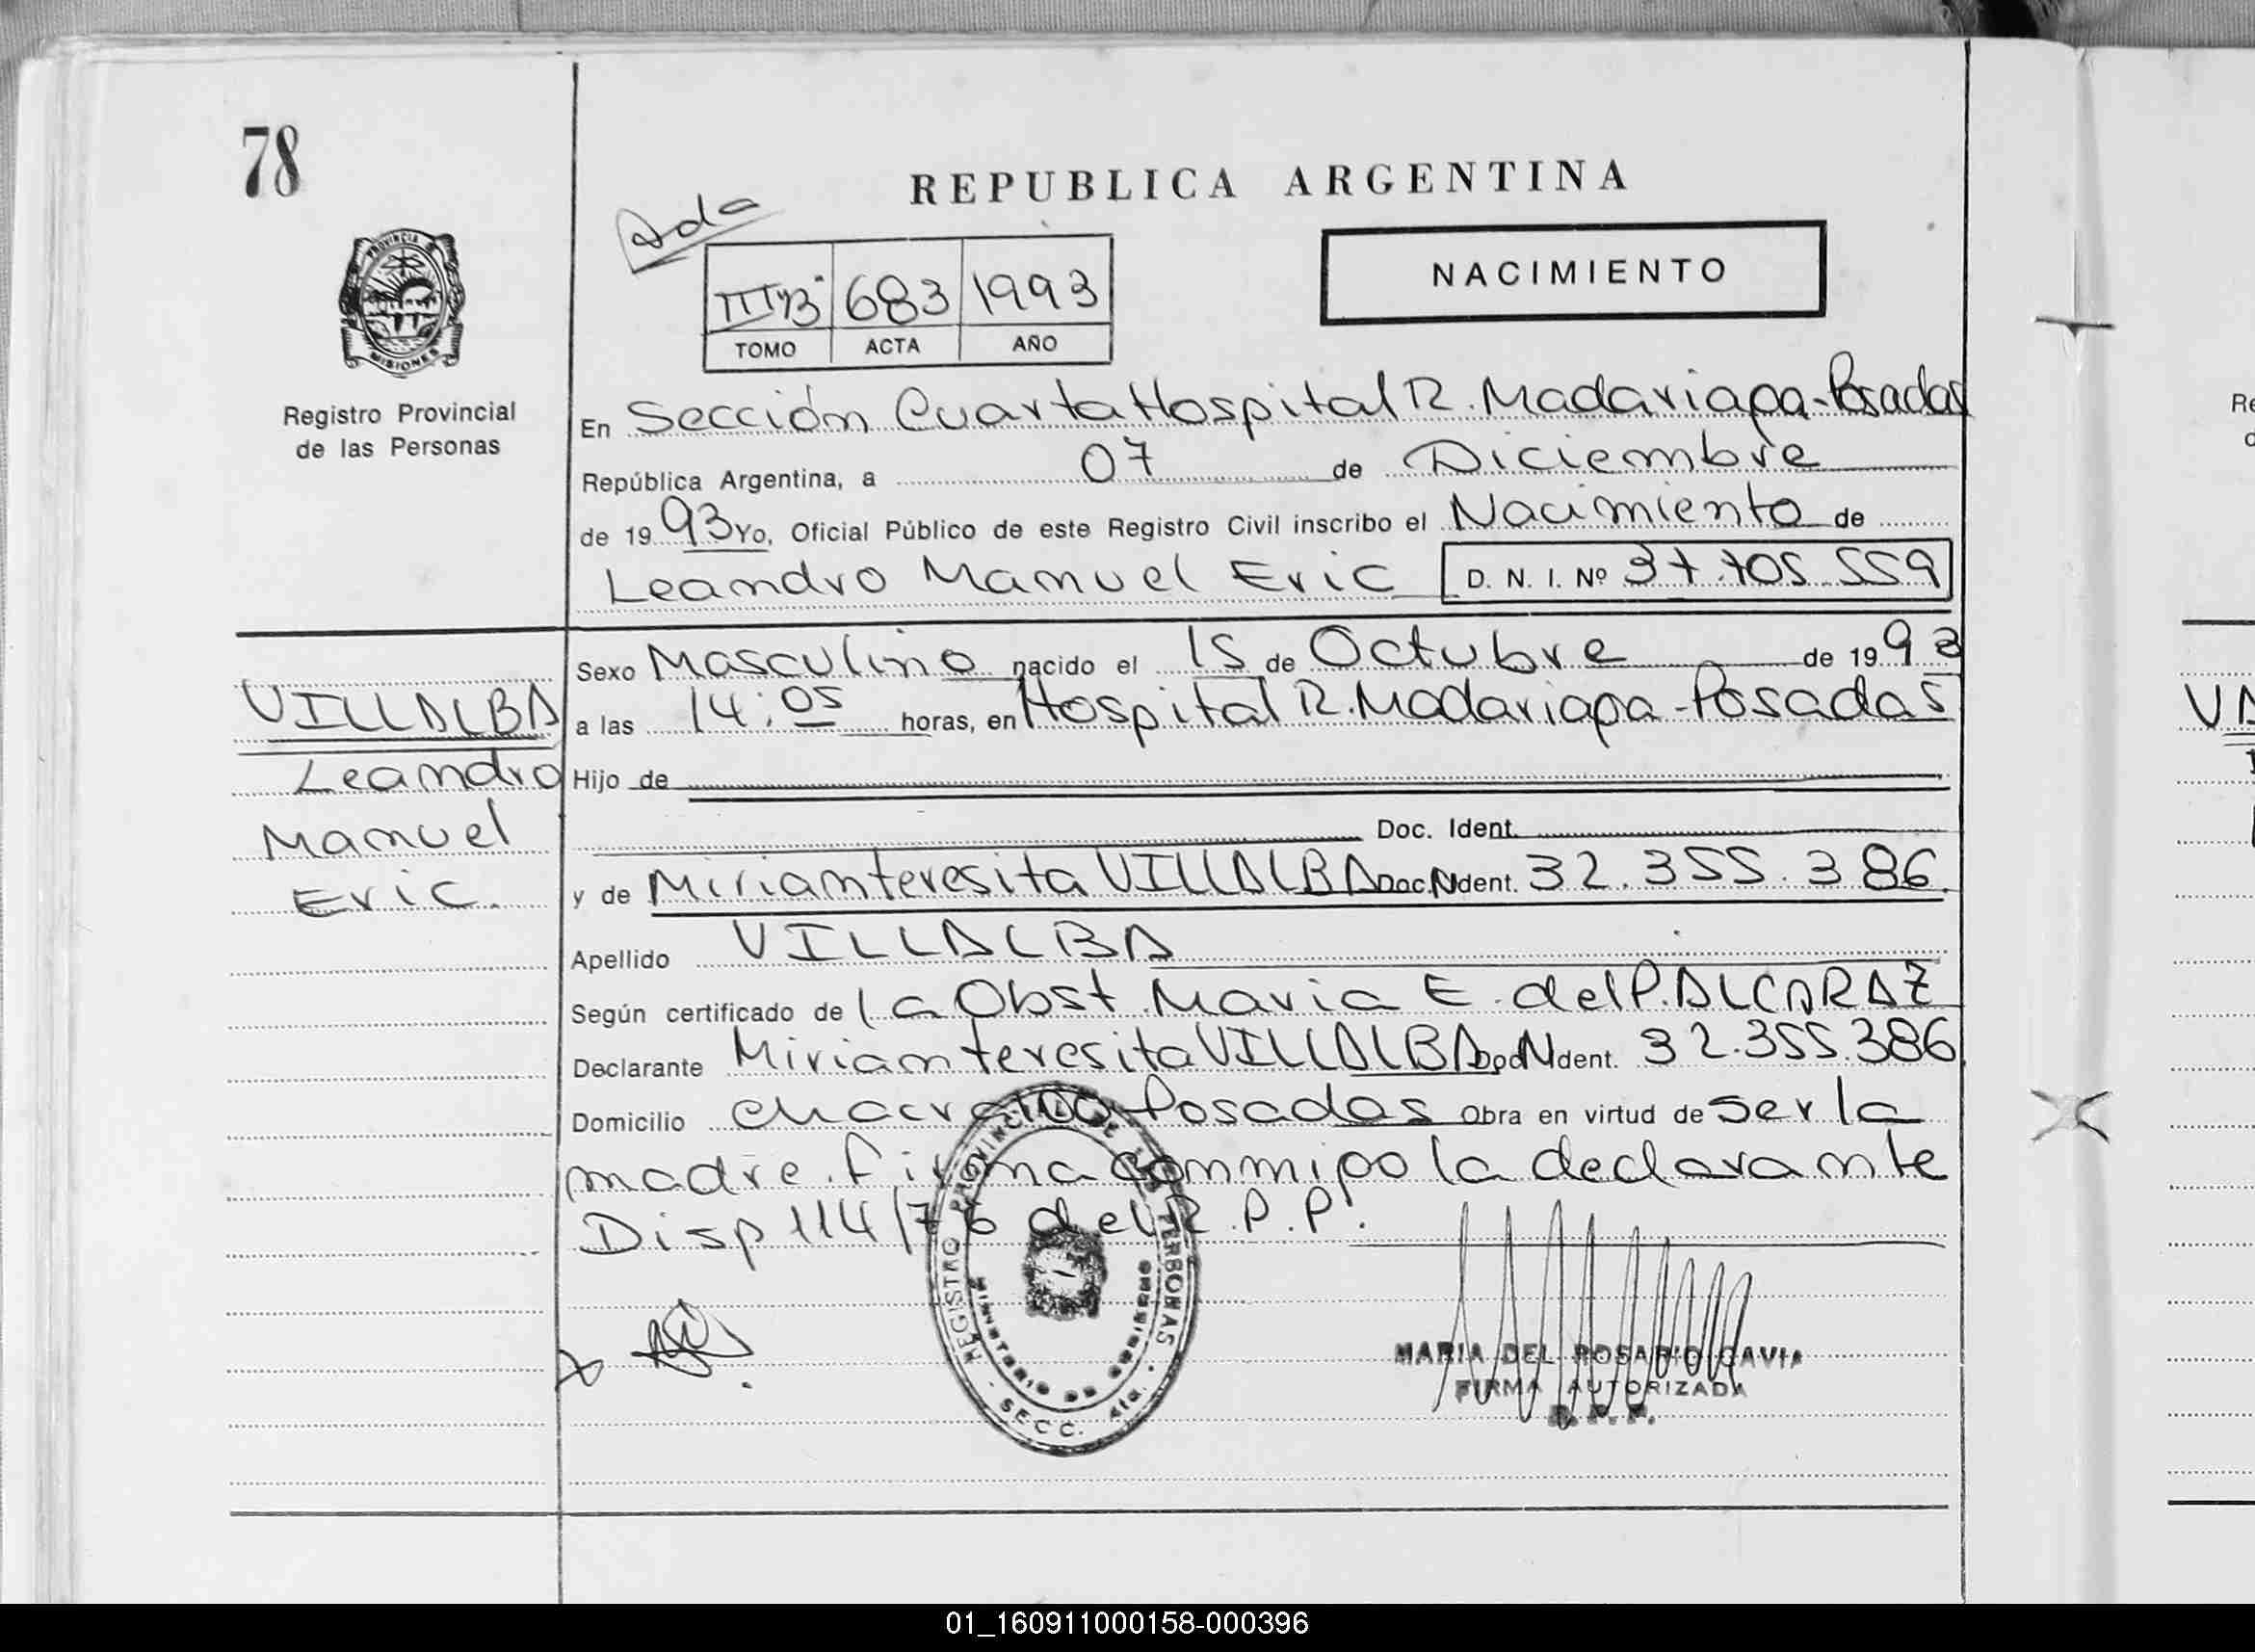 78
REPUBLICA ARGENTINA
Ada
III"B" 683 1993
TOMO ACTA AÑO
NACIMIENTO
PROVINCIA DE MISIONES
Registro Provincial
de las Personas
En Sección Cuarta Hospital R. Madariaga-Posadas
República Argentina, a 07 de Diciembre
de 1993 Yo, Oficial Público de este Registro Civil inscribo el Nacimiento de
Leandro Manuel Eric D. N. I. Nº 37.705.559
Sexo Masculino nacido el 15 de Octubre de 1993
a las 14:05 horas, en Hospital R. Madariaga-Posadas
Hijo de
Doc. Ident.
y de Miriam teresita VILLALBA Doc. Ident. 32.355.386
Apellido VILLALBA
Según certificado de la Obst. Maria E. del P. ALCARAZ
Declarante Miriam teresita VILLALBA Doc. Ident. 32.355.386
Domicilio chacra 100 Posadas Obra en virtud de ser la
madre. firma conmigo la declarante
Disp 114/76 del R.P.P.
VILLALBA
Leandro
Manuel
Eric.
REGISTRO PROVINCIAL DE LAS PERSONAS
MINISTERIO DE GOBIERNO
SECC. 4ta.
MARIA DEL ROSARIO GAVIA
FIRMA AUTORIZADA
R.P.P.
Re
VA
01_160911000158-000396